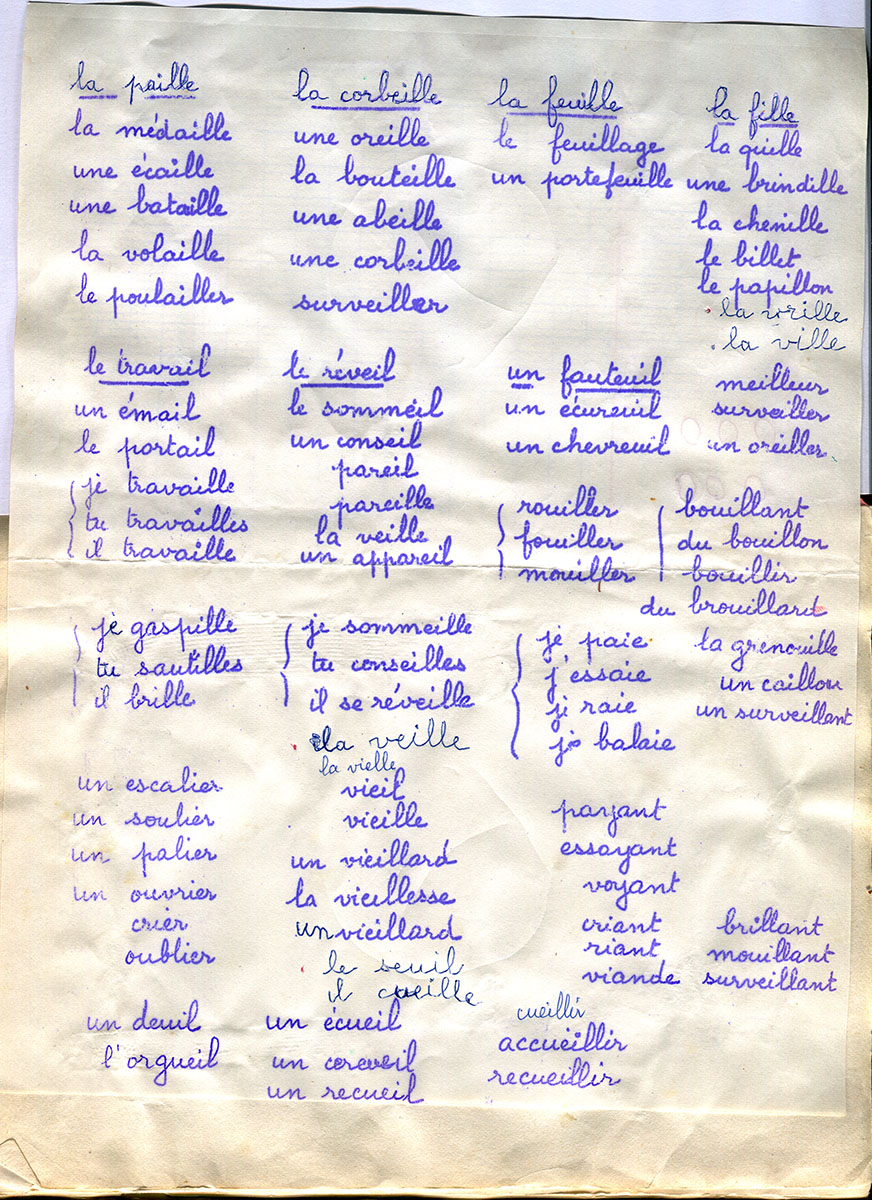 la paille
la médaille
une écaille
une bataille
la volaille
le poulailler
la corbeille
une oreille
la bouteille
une abeille
une corbeille
surveiller
la feuille
le feuillage
un portefeuille
la fille
la quille
une brindille
la chenille
le billet
le papillon
la vrille
la ville
meilleur
surveiller
un oreiller
le travail
un émail
le portail
je travaille
tu travailles
il travaille
le réveil
le sommeil
un conseil
pareil
pareille
la veille
un appareil
un fauteuil
un écureuil
un chevreuil
rouiller
fouiller
mouiller
bouillant
du bouillon
bouillir
du brouillard
je gaspille
tu sautilles
il brille
je sommeille
tu conseilles
il se réveille
la veille
la vielle
vieil
vieille
un vieillard
la vieillesse
un vieillard
le seuil
il cueille
je paie
j'essaie
je raie
je balaie
la grenouille
un caillou
un surveillant
un escalier
un soulier
un palier
un ouvrier
crier
oublier
payant
essayant
voyant
criant
riant
viande
brillant
mouillant
surveillant
un deuil
l'orgueil
un écueil
un
un recueil
cueillir
accueillir
recueillir